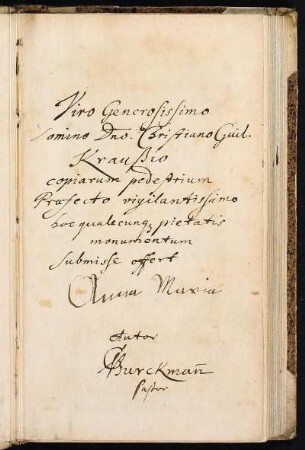 Viro Generosissimo
Domino Dno. Christiano Guil.
Kraußio
copiarum pedestrium
Præfecto vigilantissimo
hoc qualecunq; pietatis
monumentum
submisse offert
Anna Maria
Autor
Burckman̄
Pastor